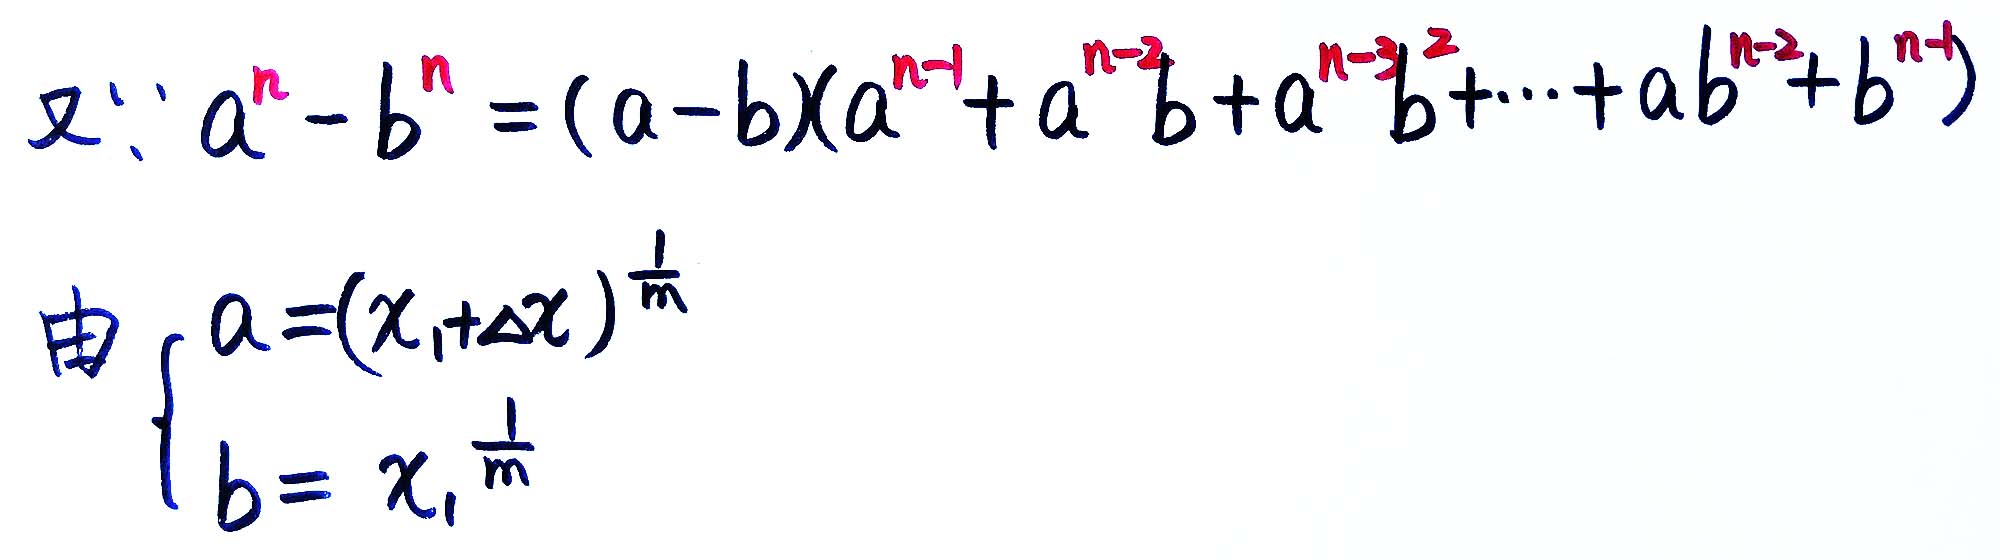 又∵ aⁿ - bⁿ = (a-b)(aⁿ⁻¹ + aⁿ⁻²b + aⁿ⁻³b² + ⋯ + abⁿ⁻² + bⁿ⁻¹)
由 { a = (x₁+Δx)^(1/m)
b = x₁^(1/m)